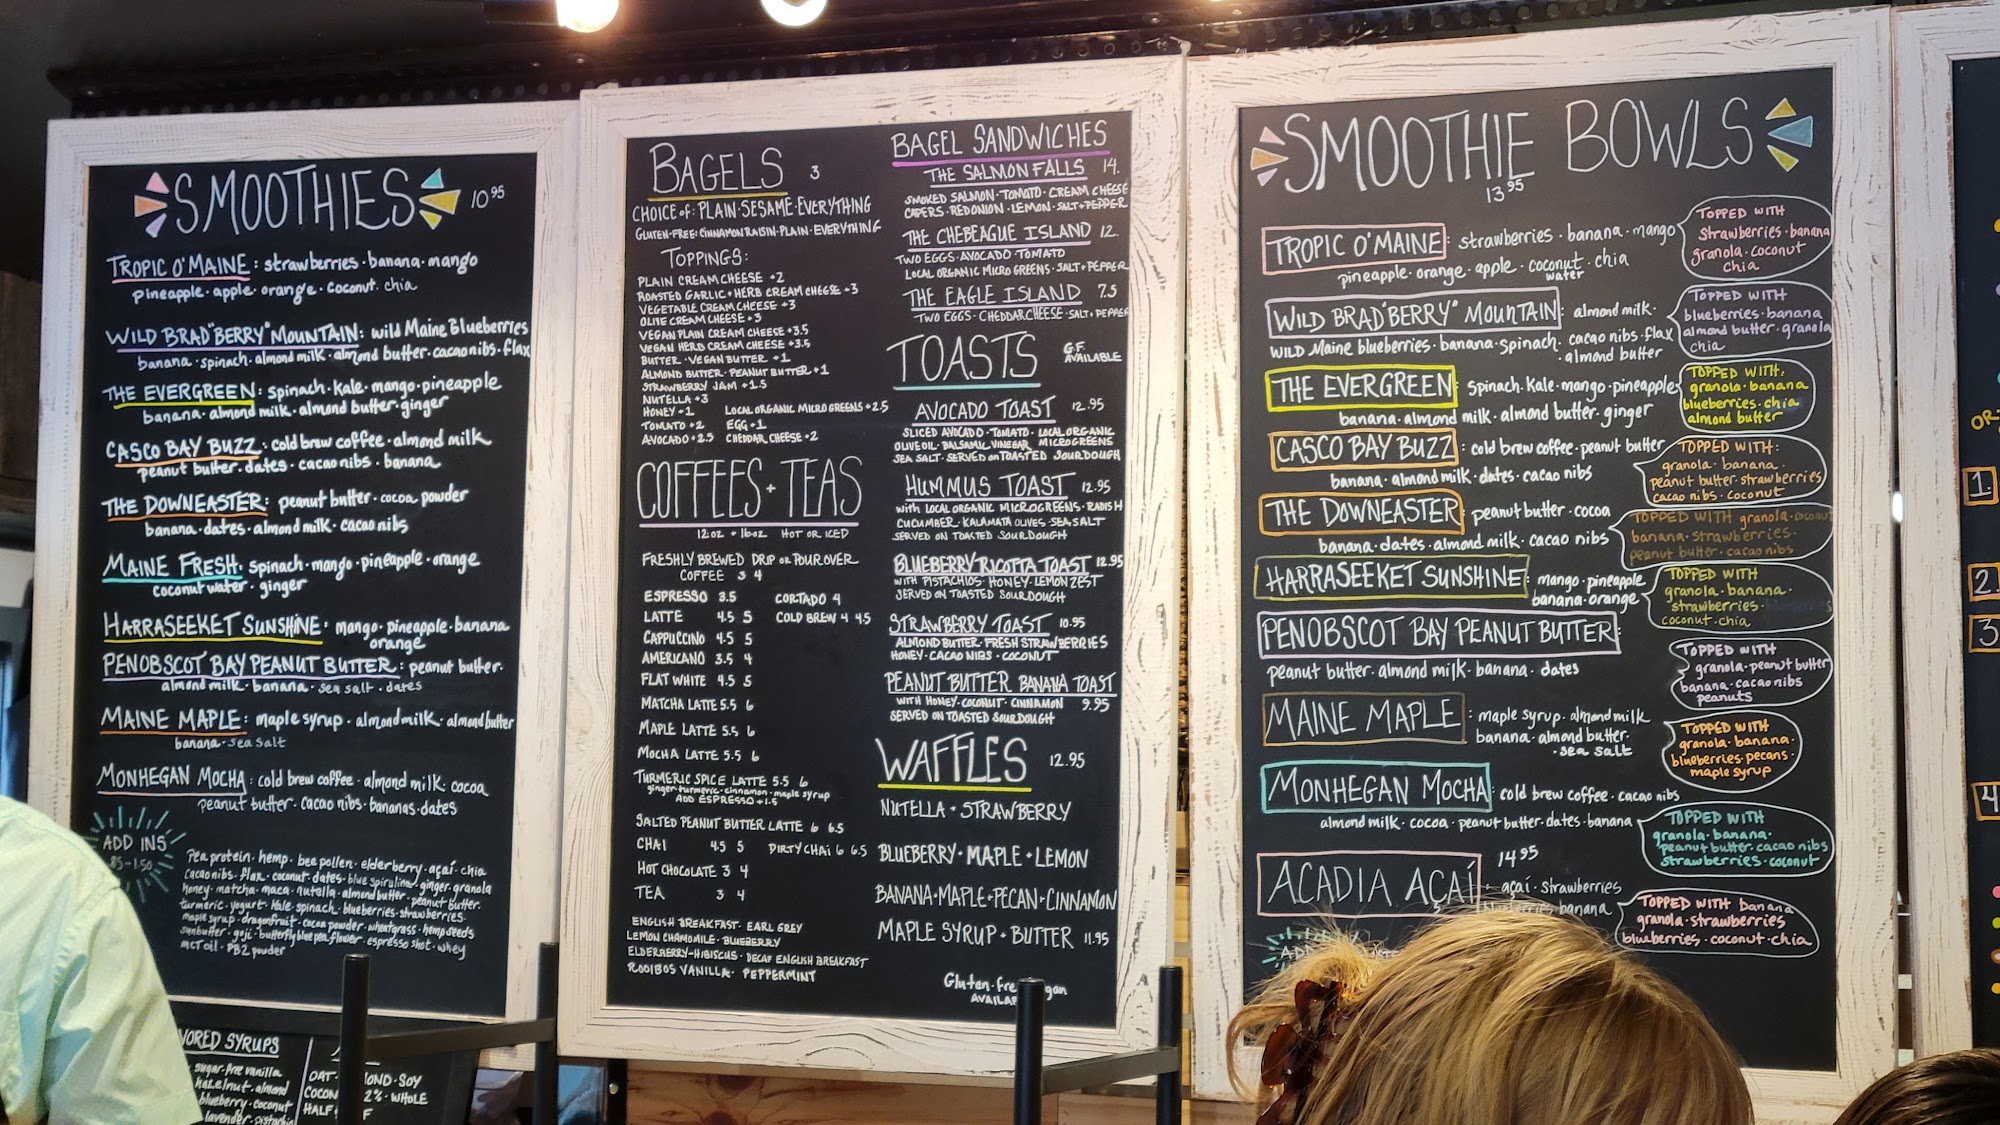 SMOOTHIES 10.95
TROPIC O'MAINE: strawberries · banana · mango
pineapple · apple · orange · coconut · chia
WILD BRAD"BERRY" MOUNTAIN: wild Maine Blueberries
banana · spinach · almond milk · almond butter · cacao nibs · flax
THE EVERGREEN: spinach · kale · mango · pineapple
banana · almond milk · almond butter · ginger
CASCO BAY BUZZ: cold brew coffee · almond milk
peanut butter · dates · cacao nibs · banana
THE DOWNEASTER: peanut butter · cocoa powder
banana · dates · almond milk · cacao nibs
MAINE FRESH: spinach · mango · pineapple · orange
coconut water · ginger
HARRASEEKET SUNSHINE: mango · pineapple · banana
orange
PENOBSCOT BAY PEANUT BUTTER: peanut butter ·
almond milk · banana · sea salt · dates
MAINE MAPLE: maple syrup · almond milk · almond butter
banana · sea salt
MONHEGAN MOCHA: cold brew coffee · almond milk · cocoa
peanut butter · cacao nibs · bananas · dates
ADD INS
.85-1.50
Pea protein · hemp · bee pollen · elderberry · açaí · chia
cacao nibs · flax · coconut · dates · blue spirulina · ginger · granola
honey · matcha · maca · nutella · almond butter · peanut butter
turmeric · yogurt · kale · spinach · blueberries · strawberries
maple syrup · dragonfruit · cocoa powder · wheatgrass · hemp seeds
sunbutter · goji · butterfly blue pea flower · espresso shot · whey
MCT oil · PB2 powder
VORED SYRUPS
sugar-free vanilla
hazelnut · almond
blueberry · coconut
lavender · pistachio
OAT · OND · SOY
COCON 2% · WHOLE
HALF F
BAGELS 3
CHOICE of: PLAIN · SESAME · EVERYTHING
GLUTEN-FREE: CINNAMON RAISIN · PLAIN · EVERYTHING
TOPPINGS:
PLAIN CREAM CHEESE +2
ROASTED GARLIC + HERB CREAM CHEESE +3
VEGETABLE CREAM CHEESE +3
OLIVE CREAM CHEESE +3
VEGAN PLAIN CREAM CHEESE +3.5
VEGAN HERB CREAM CHEESE +3.5
BUTTER · VEGAN BUTTER +1
ALMOND BUTTER · PEANUT BUTTER +1
STRAWBERRY JAM +1.5
NUTELLA +3
HONEY +1 LOCAL ORGANIC MICRO GREENS +2.5
TOMATO +2 EGG +1
AVOCADO +2.5 CHEDDAR CHEESE +2
COFFEES + TEAS
12oz + 16oz HOT OR ICED
FRESHLY BREWED DRIP OR POUR OVER
COFFEE 3 4
ESPRESSO 3.5 CORTADO 4
LATTE 4.5 5 COLD BREW 4 4.5
CAPPUCCINO 4.5 5
AMERICANO 3.5 4
FLAT WHITE 4.5 5
MATCHA LATTE 5.5 6
MAPLE LATTE 5.5 6
MOCHA LATTE 5.5 6
TURMERIC SPICE LATTE 5.5 6
ginger · turmeric · cinnamon · maple syrup
ADD ESPRESSO +1.5
SALTED PEANUT BUTTER LATTE 6 6.5
CHAI 4.5 5 DIRTY CHAI 6 6.5
HOT CHOCOLATE 3 4
TEA 3 4
ENGLISH BREAKFAST · EARL GREY
LEMON CHAMOMILE · BLUEBERRY
ELDERBERRY-HIBISCUS · DECAF ENGLISH BREAKFAST
ROOIBOS VANILLA · PEPPERMINT
BAGEL SANDWICHES
THE SALMON FALLS 14.
SMOKED SALMON · TOMATO · CREAM CHEESE
CAPERS · RED ONION · LEMON · SALT + PEPPER
THE CHEBEAGUE ISLAND 12.
TWO EGGS · AVOCADO · TOMATO
LOCAL ORGANIC MICRO GREENS · SALT + PEPPER
THE EAGLE ISLAND 7.5
TWO EGGS · CHEDDAR CHEESE · SALT + PEPPER
TOASTS G.F. AVAILABLE
AVOCADO TOAST 12.95
SLICED AVOCADO · TOMATO · LOCAL ORGANIC
OLIVE OIL · BALSAMIC VINEGAR MICROGREENS
SEA SALT · SERVED on TOASTED SOURDOUGH
HUMMUS TOAST 12.95
with LOCAL ORGANIC MICROGREENS · RADISH
CUCUMBER · KALAMATA OLIVES · SEA SALT
SERVED ON TOASTED SOURDOUGH
BLUEBERRY RICOTTA TOAST 12.95
WITH PISTACHIOS · HONEY · LEMON ZEST
SERVED ON TOASTED SOURDOUGH
STRAWBERRY TOAST 10.95
ALMOND BUTTER · FRESH STRAWBERRIES
HONEY · CACAO NIBS · COCONUT
PEANUT BUTTER BANANA TOAST
WITH HONEY · COCONUT · CINNAMON 9.95
SERVED ON TOASTED SOURDOUGH
WAFFLES 12.95
NUTELLA + STRAWBERRY
BLUEBERRY + MAPLE + LEMON
BANANA + MAPLE + PECAN + CINNAMON
MAPLE SYRUP + BUTTER 11.95
Gluten-fre gan
AVAILA
SMOOTHIE BOWLS
13.95
TROPIC O'MAINE: strawberries · banana · mango
pineapple · orange · apple · coconut water · chia
TOPPED WITH
strawberries · banana
granola · coconut
chia
WILD BRAD"BERRY" MOUNTAIN: almond milk ·
WILD Maine blueberries · banana · spinach · cacao nibs · flax
· almond butter
TOPPED WITH
blueberries · banana
almond butter · granola
chia
THE EVERGREEN: spinach · kale · mango · pineapple
banana · almond milk · almond butter · ginger
TOPPED WITH:
granola · banana
blueberries · chia
almond butter
CASCO BAY BUZZ: cold brew coffee · peanut butter
banana · almond milk · dates · cacao nibs
TOPPED WITH:
granola · banana
peanut butter · strawberries
cacao nibs · coconut
THE DOWNEASTER: peanut butter · cocoa
banana · dates · almond milk · cacao nibs
TOPPED WITH granola · coconut
banana · strawberries
peanut butter · cacao nibs
HARRASEEKET SUNSHINE: mango · pineapple
banana · orange
TOPPED WITH
granola · banana
strawberries ·
coconut · chia
PENOBSCOT BAY PEANUT BUTTER:
peanut butter · almond milk · banana · dates
TOPPED WITH
granola · peanut butter
banana · cacao nibs
peanuts
MAINE MAPLE: maple syrup · almond milk
banana · almond butter
· sea salt
TOPPED WITH
granola · banana
blueberries · pecans
maple syrup
MONHEGAN MOCHA: cold brew coffee · cacao nibs
almond milk · cocoa · peanut butter · dates · banana
TOPPED WITH
granola · banana
peanut butter · cacao nibs
strawberries · coconut
ACADIA AÇAÍ 14.95
açaí · strawberries
blueberries · banana
TOPPED WITH banana
granola · strawberries
blueberries · coconut · chia
ADD
OR
1.
2.
3
4